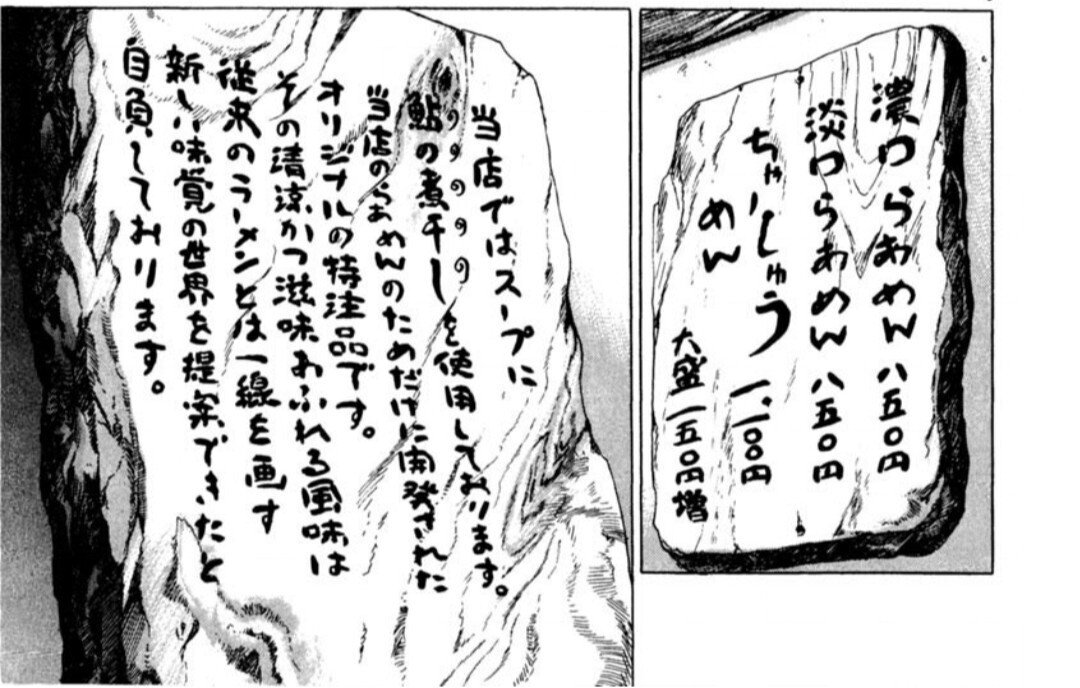 濃口らあめん 八五〇円
淡口らあめん 八五〇円
ちゃーしゅう
めん 一、一〇〇円
大盛一五〇円増
当店ではスープに
鮎の煮干しを使用しております。
当店のらあめんのためだけに開発された
オリジナルの特注品です。
その清涼かつ滋味あふれる風味は
従来のラーメンとは一線を画す
新しい味覚の世界を提案できたと
自負しております。